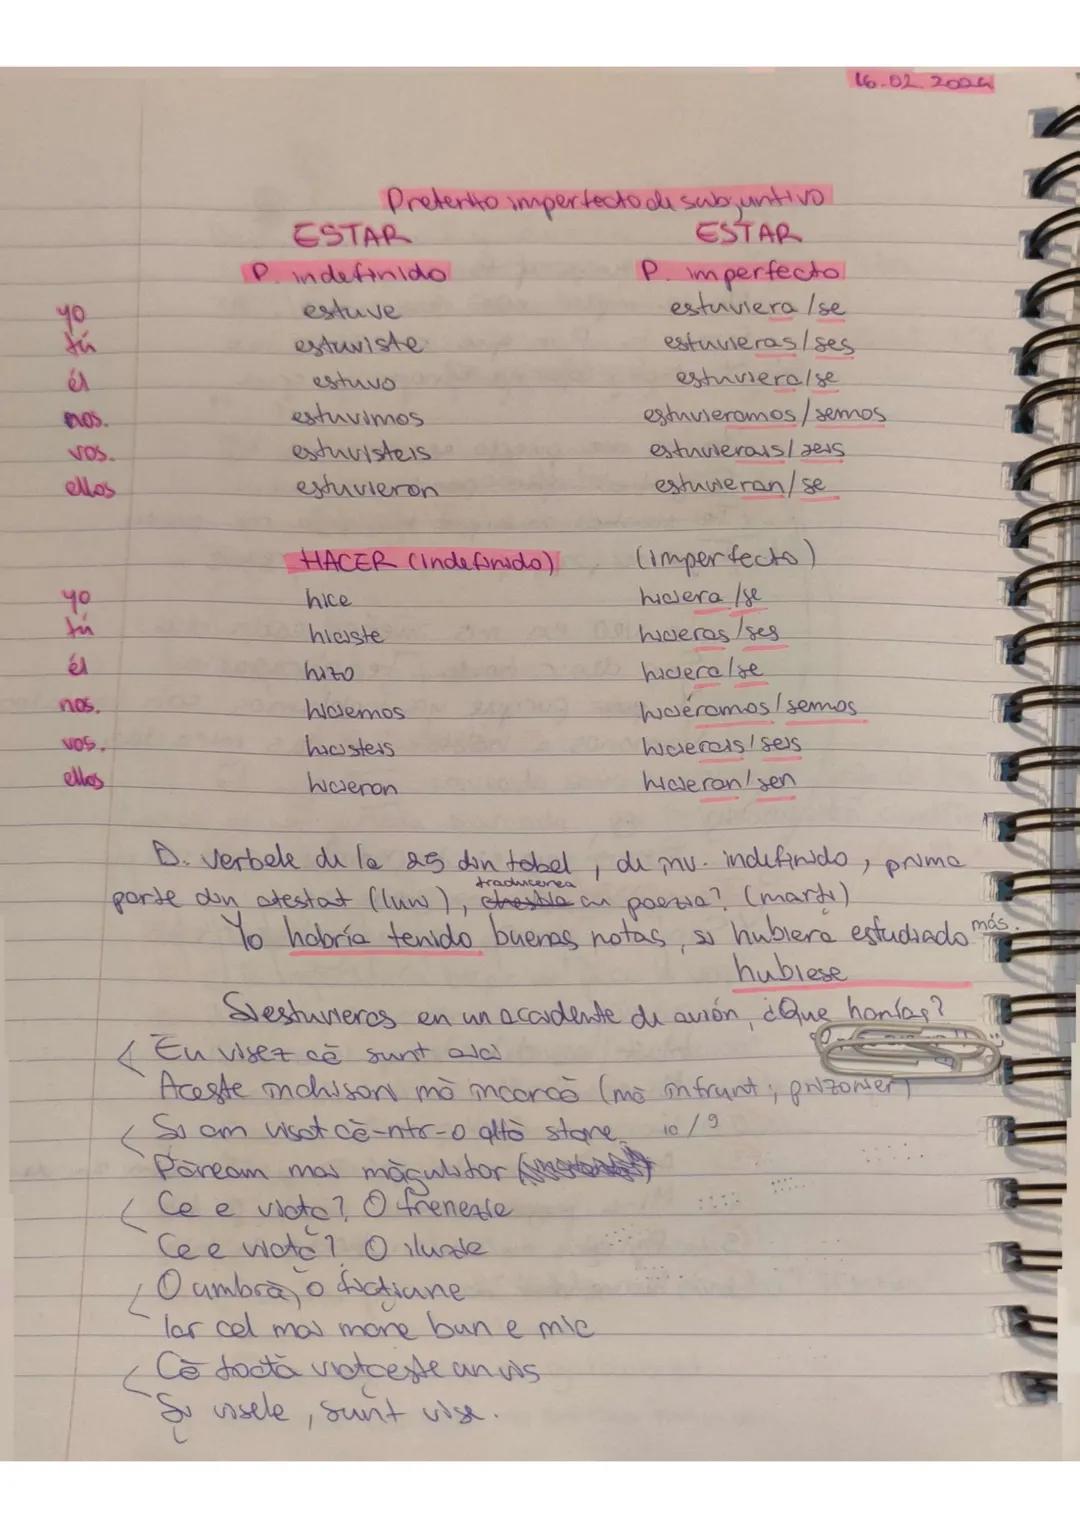 16.02.2024
Preterito imperfecto de subjuntivo
ESTAR ESTAR
P. indefinido P. imperfecto
yo estuve estuviera/se
tú estuviste estuvieras/ses
él estuvo estuviera/se
nos. estuvimos estuvieramos/semos
vos. estuvisteis estuvierais/seis
ellos estuvieron estuvieran/se
HACER (indefinido) (imperfecto)
yo hice hiciera/se
tú hiciste hicieras/ses
él hizo hiciera/se
nos. hiciemos hiciéramos/semos
vos. hicisteis hicierais/seis
ellos hicieron hicieran/sen
D. verbele de la 25 din tabel, de înv. indefinido, prima
parte din atestat (luni), traducerea cu poezia? (marți)
Yo habría tenido buenas notas, si hubiera estudiado más.
hubiese
Si estuvieras en un accidente de avión, ¿Que harías?
Eu visez că sunt aici
Aceste închisori mă încarcă (mă înfrunt; prizonier)
Și am visat că-ntr-o altă stare 10/9
Păream mai măgulitor
Ce e viața? O frenezie
Ce e viața? O iluzie
O umbră, o ficțiune
Iar cel mai mare bun e mic
Că toată viața este un vis
Și visele, sunt vise.